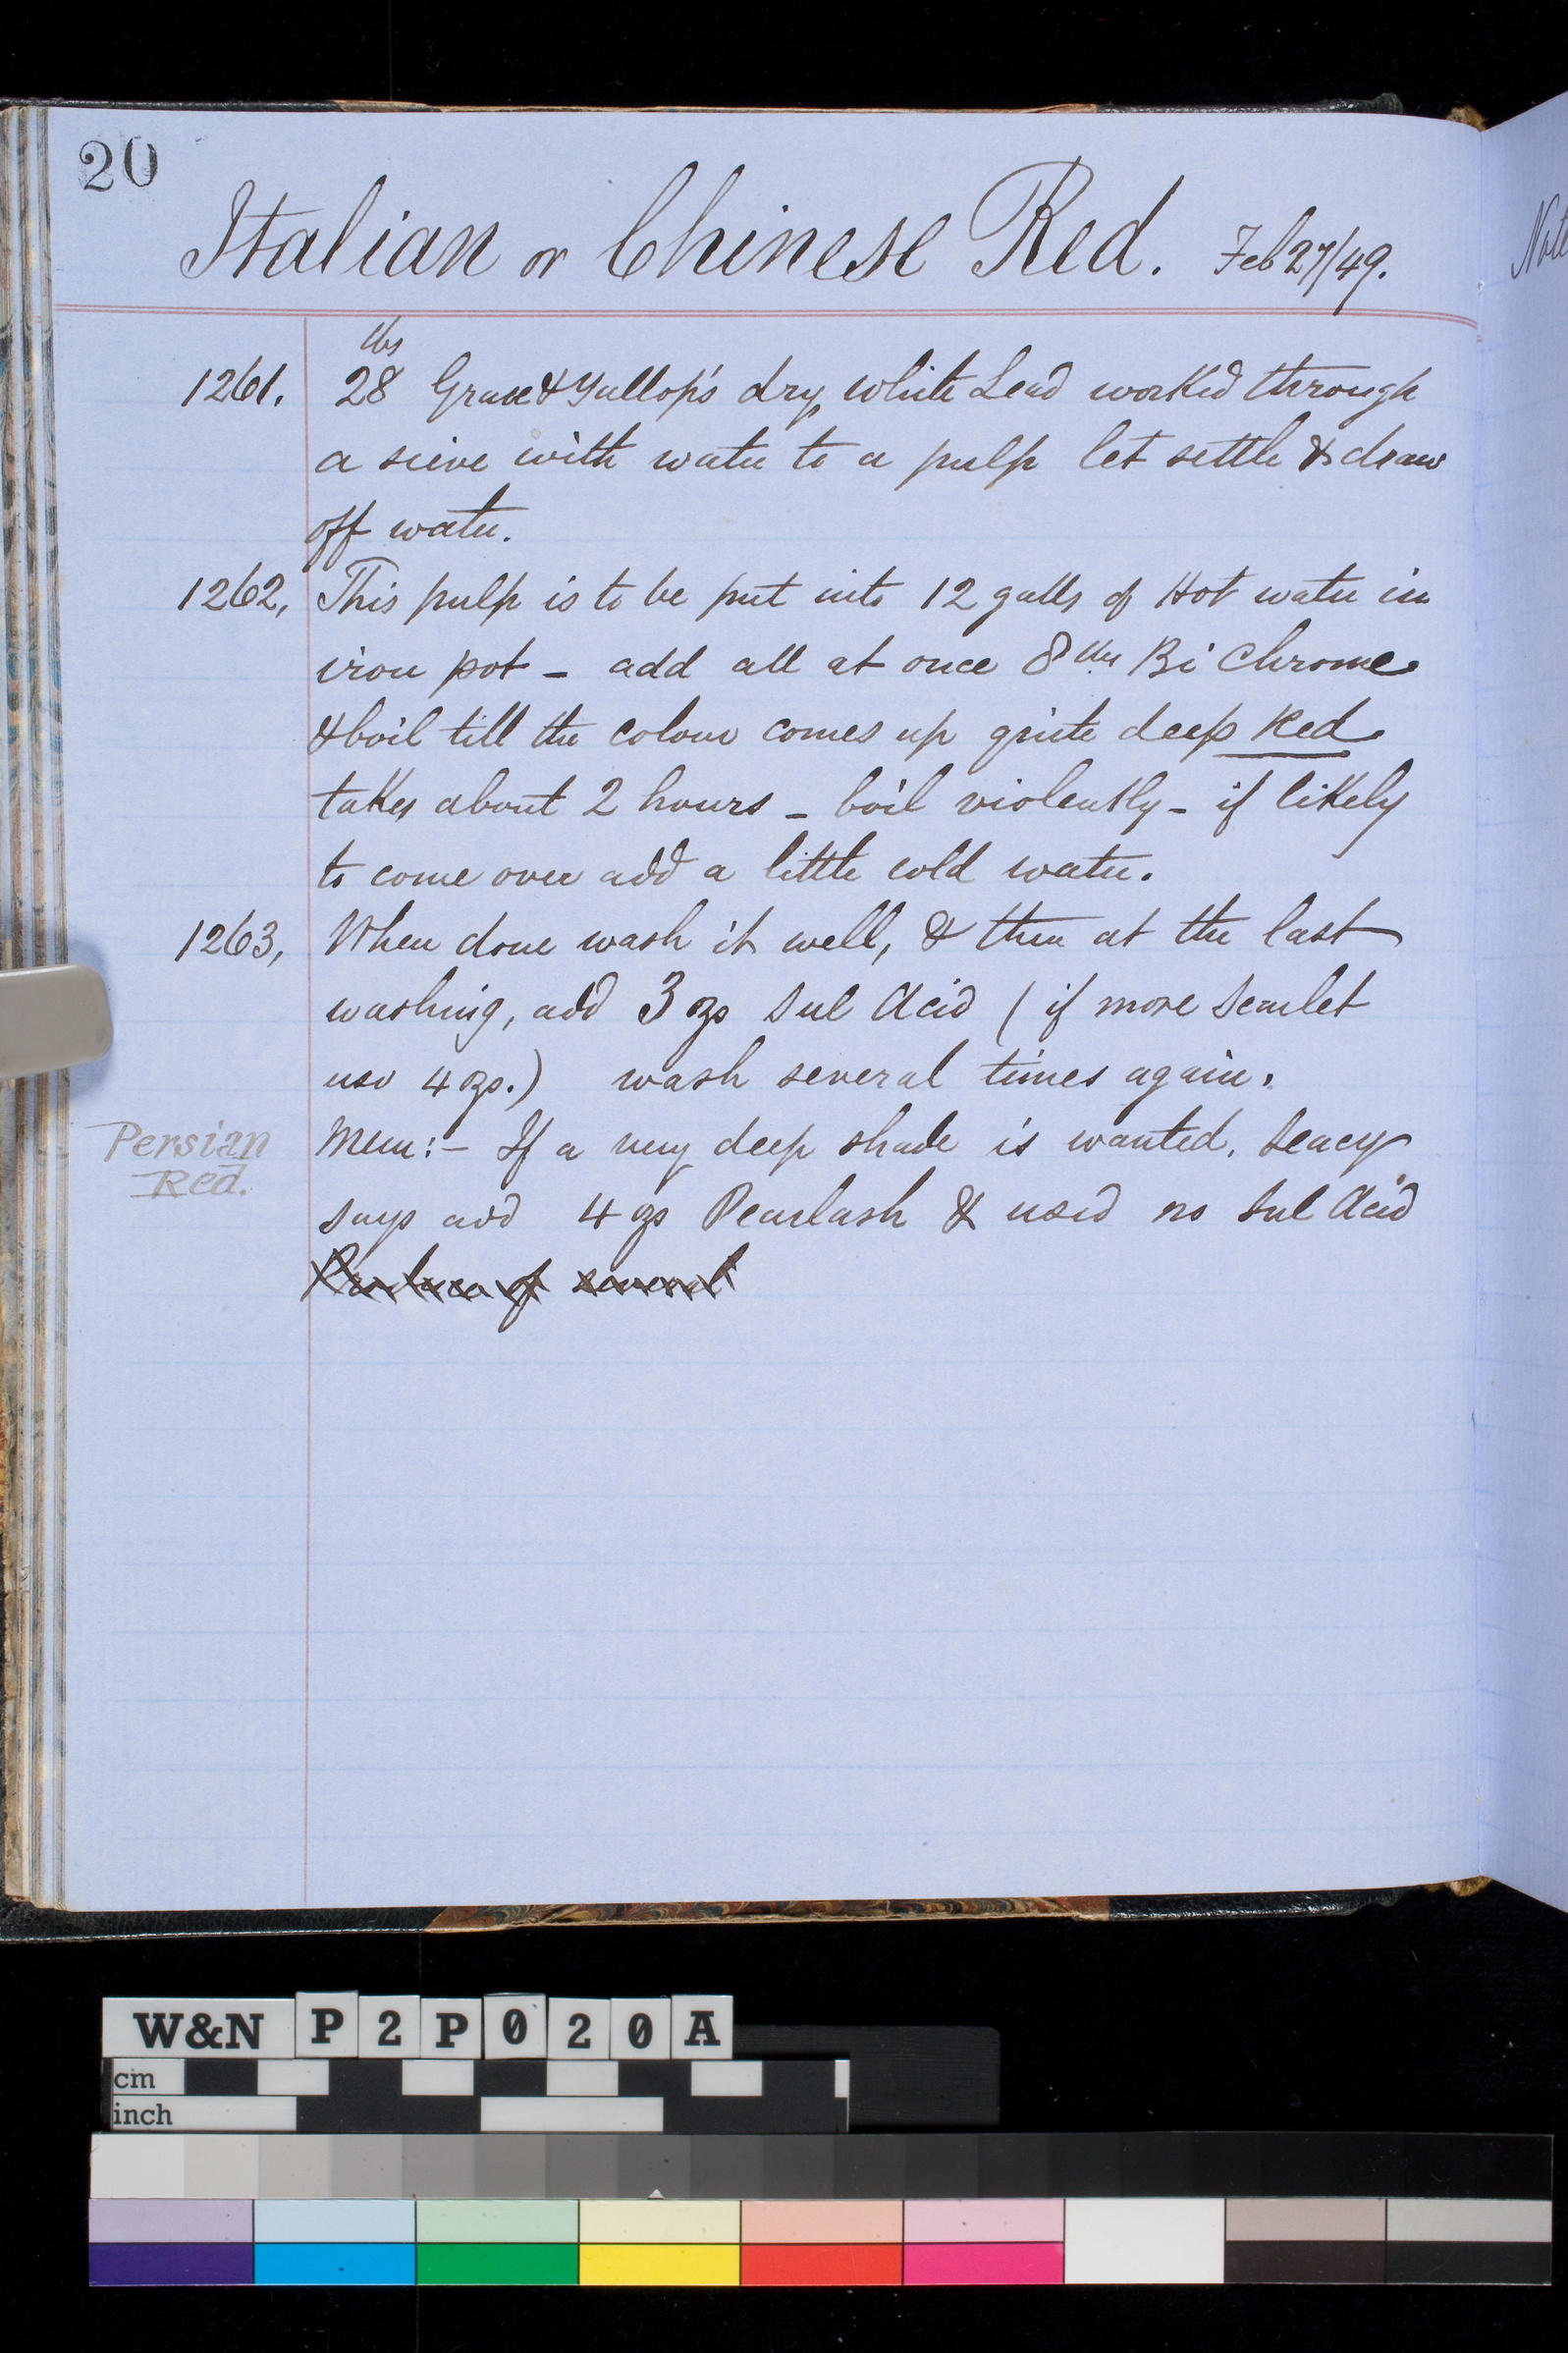 20
Italian or Chinese Red. Feb 27/49.
1261. 28 lbs Grace & Gallop's dry white Lead worked through
a sieve with water to a pulp let settle & draw
off water.
1262, This pulp is to be put into 12 galls of Hot water in
iron pot - add all at once 8 lbs Bi Chrome
& boil till the colour comes up quite deep Red
takes about 2 hours - boil violently - if likely
to come over add a little cold water.
1263, When done wash it well, & then at the last
washing, add 3 ozs Sul Acid (if more Scarlet
use 4 ozs.) wash several times again.
Persian
Red.
Mem:- If a very deep shade is wanted, Seacy
says add 4 ozs Pearlash & used no Sul Acid
of several
W&N P2P020A
cm
inch